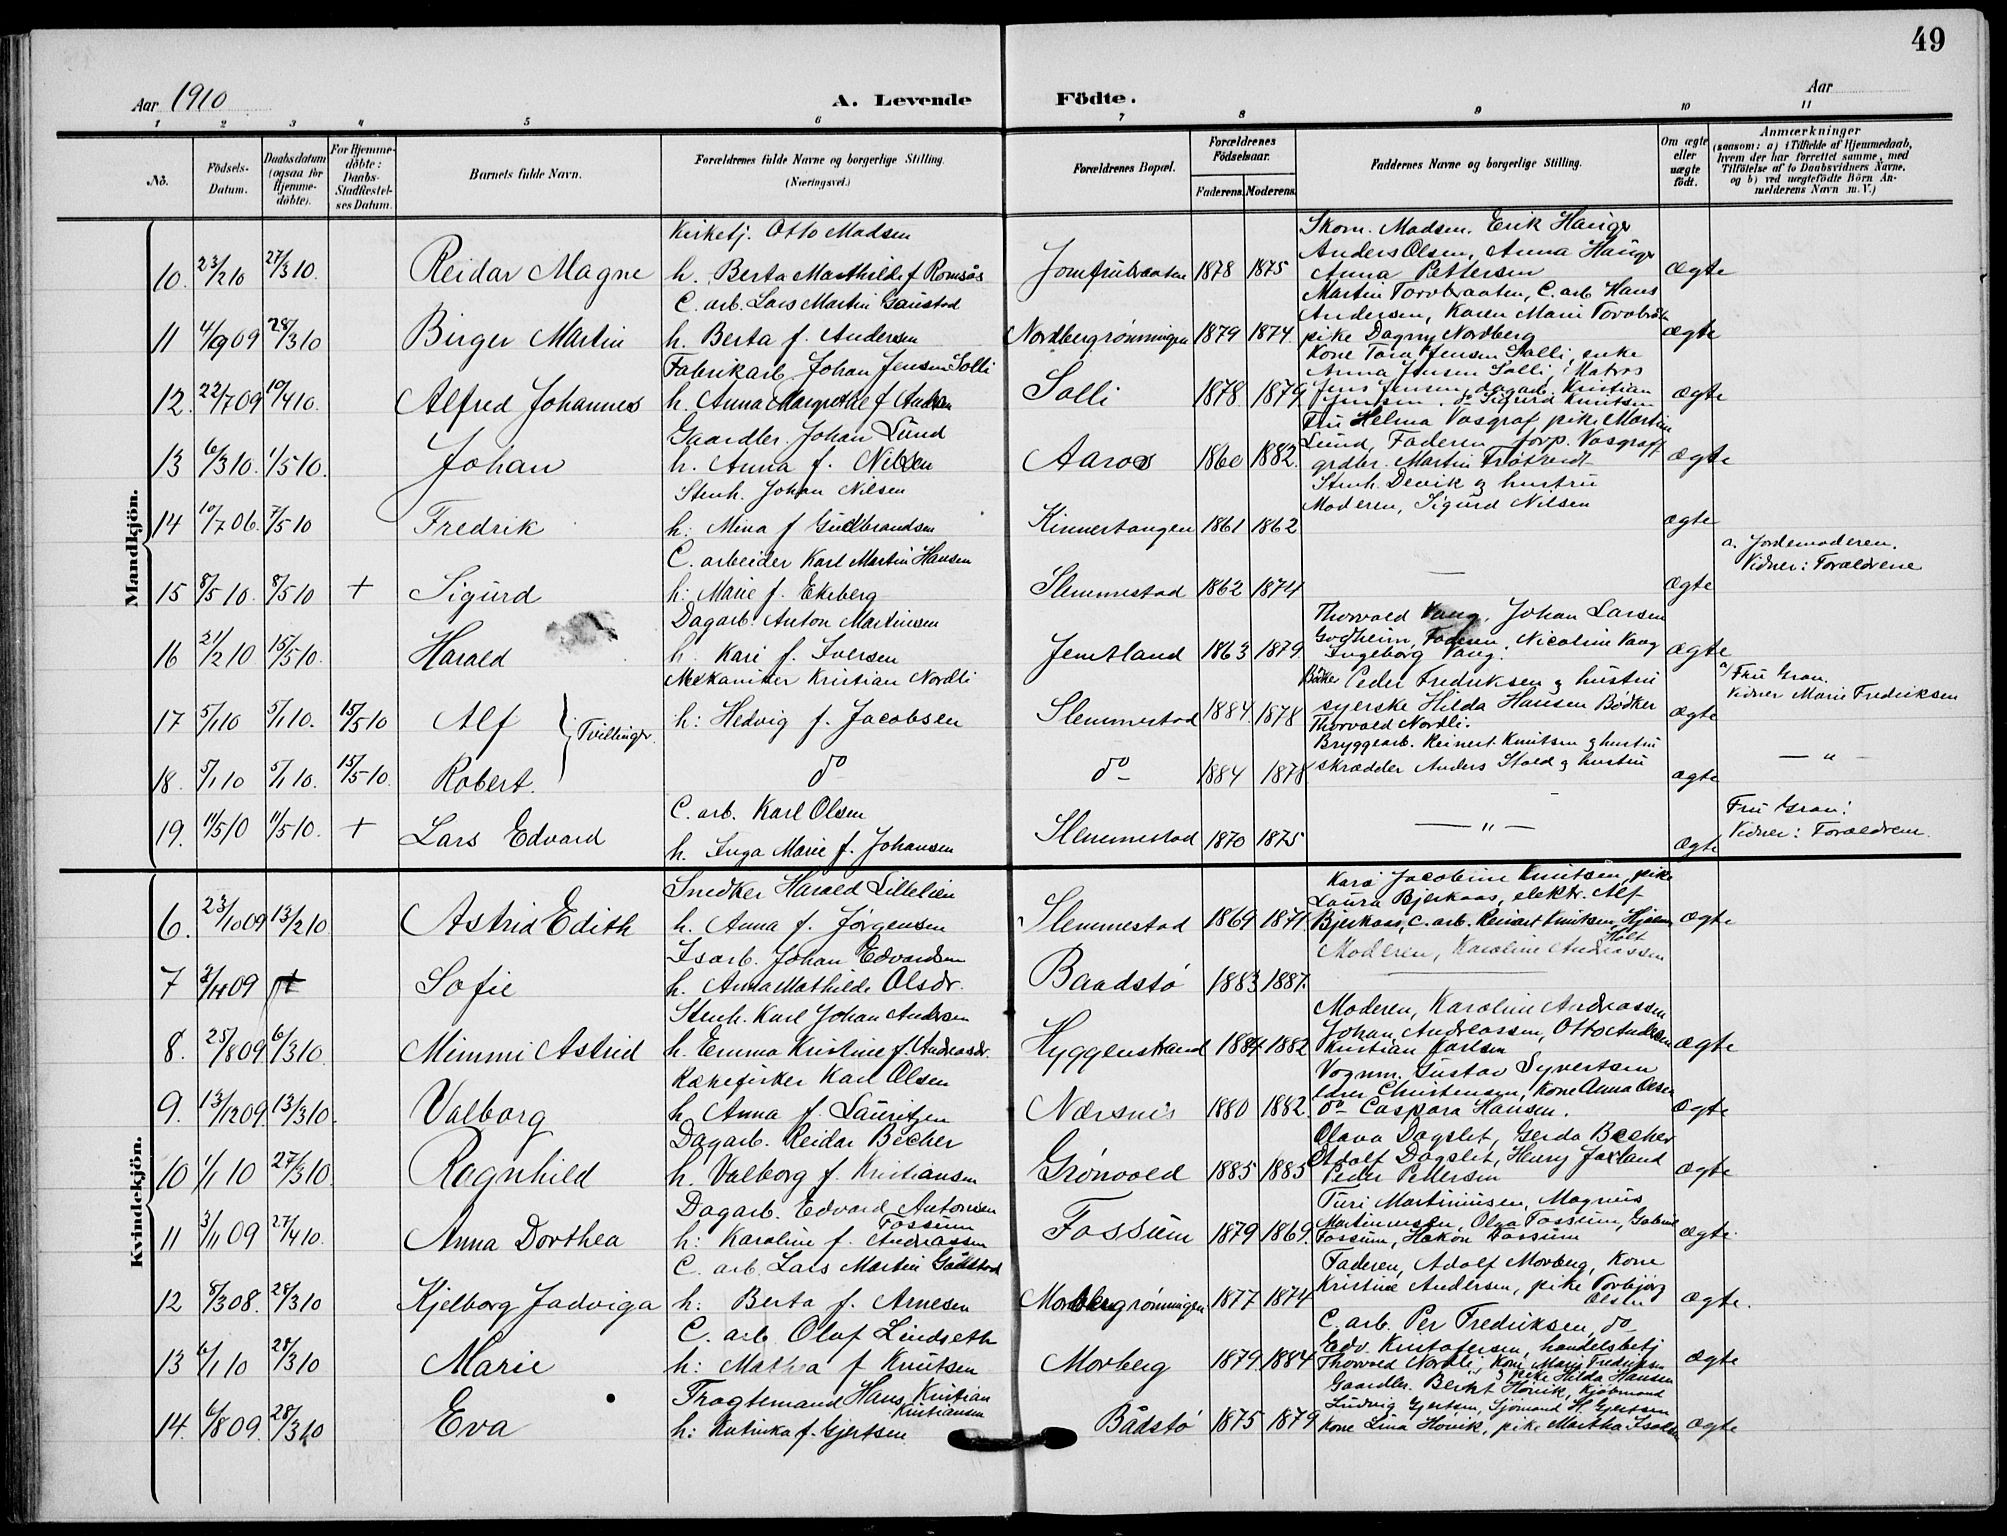 49
Aar 1910
A. Levende Födte.
Aar
1 2 3 4 5 6 7 8 9 10 11
No.
Födsels-Datum.
Daabsdatum (ogsaa for Hjemme-döbte).
For Hjemme-döbte: Daabs-Stadfæstel-ses Datum.
Barnets fulde Navn.
Forældrenes fulde Navne og borgerlige Stilling. (Næringsvei.)
Forældrenes Bopæl.
Forældrenes Födselsaar.
Faderens. Moderens.
Faddernes Navne og borgerlige Stilling.
Om ægte eller uægte födt.
Anmærkninger (saasom: a) i Tilfælde af Hjemmedaab, hvem der har forrettet samme, med Tilföielse af to Daabsvidners Navne, og b) ved uægtefödte Börn An-melderens Navn m. V.)
Mandkjön.
Kirketj. Otto Madsen
Skom. Madsen. Erik Hauger
Anders Olsen, Anna Hauger
10. 23/2 10 27/3 10. Reidar Magne h. Berta Marthilde f. Romsås Jomfrubraaten 1878 1875 Anna Pettersen ægte
C. arb. Lars Martin Gaustad
Martin Torvbraaten, C. arb. Hans
Andersen, Karen Marie Torvbråt
11 4/9 09 28/3 10 Birger Martin h. Berta f. Andersen Nordbergrønningen 1879 1874. pike Dagny Nordberg ægte
Fabrikarb. Johan Jensen Solli
Kone Tora Jensen Solli, enke
Anna Jensen Solli, Matros
12. 22/7 09 10/4 10. Alfred Johannes h. Anna Margrethe f. Solli 1878. 1879 Jens Jensen, dagarb. Kristian ægte
Jensen, do Sigurd Knutsen
Gaardbr. Johan Lund
Fru Helma Vosgraf pike Martin
Lund, Faderen, forp. Vosgraff
13 6/3 10. 1/5 10. Johan h. Anna f. Nilsen Aaros 1860 1882. grdbr. Martin ægte
Stenh. Johan Nilsen
Stenh. Devik og hustru
Moderen, Sigurd Nilsen
14 10/7 06. 7/5 10 Fredrik h: Mina f Gudbrandsen Kinnertangen 1861 1862 ægte
C. arbeider Karl Martin Hansen
a. Jordemoderen.
Vidner: Forældrene
15 8/5 10. 8/5 10 + Sigurd h: Marie f. Ekeberg Slemmestad 1862 1874 — ægte
Dagarb. Anton Martinsen
Thorvald Vang, Johan Larsen
Godheim, Faderen, Nicoline Vang
16 21/2 10 15/5 10. Harald h. Kari f. Iversen Jemtland 1863 1879. Ingeborg Vang. ægte
Mekaniker Kristian Nordli
Bøker Peder Fredriksen og hustru
a/ Fru Gran.
Vidner Marie Fredriksen
17 5/1 10 5/1 10. 15/5 10 Alf } Tvillinger. h: Hedvig f. Jacobsen Slemmestad 1884. 1878 syerske Hilda Hansen Bødker ægte
Thorvald Nordli.
Bryggearb. Reinert Knutsen og hustru
18. 5/1 10 5/1 10. 15/5 10. Robert. do do 1884 1878 skrædder Anders Stold og hustru ægte — " —
C. arb. Karl Olsen
Fru Gran.
Vidner: Forældrene.
19. 11/5 10 11/5 10. + Lars Edvard h. Inga Marie f. Johansen Slemmestad 1870 1875 — " — ægte
Kvindekjön.
Snedker Harald Lillelien
Jacobine Knutsen, pike
Laura Bjerkaas, elektr. Alf
6. 23/10 09 13/2 10. Astrid Edith h. Anna f. Jørgensen Slemmestad 1869 1871. Bjerkaas, C. arb. Reinert Knutsen, Hjalm. Holt ægte
Isarb. Johan Edvardsen
Moderen, Karoline Andreassen
7 3/4 09 + Sofie h. Anna Mathilde Olsdr. Baadstø 1883 1887.
Stenh. Karl Johan Andersen
Moderen, Karoline Andreassen
Johan Andreassen, Otto Andersen
8. 25/8 09 6/3 10. Mimmi Astrid h. Emma Kristine f. Andreasdr. Hyggenstrand 1884 1882 Kristian Karlsen ægte
Karl Olsen
Vognm. Gustav Syvertsen
Christensen, Kone Anna Olsen
9. 13/12 09. 13/3 10. Valborg h. Anna f. Lauritzen Nærsnes 1880 1882 do Caspara Hansen. ægte
Dagarb. Reidar Becher
Olava Dagslet, Gerda Becher
10 1/1 10 27/3 10. Ragnhild h. Valborg f. Kristiansen Grönvold 1885 1885 Adolf Dagslet, Henry ægte
Peder Pettersen
Dagarb. Edvard Antonsen Fossum
Turi Martinusen, Magnus
11 3/11 09 27/4 10. Anna Dorthea h: Karoline f. Andreassen Fossum 1879 1869. Martinusen, Olga Fossum, Gabriel ægte.
Fossum, Håkon Fossum
C. arb. Lars Martin Gåustad
Faderen, Adolf Morberg, Kone
12 8/3 08. 28/3 10 Kjelborg Jadviga h: Berta f. Arnesen 1877 1874 Kristine Andersen, pike Torbjörg Olsen ægte.
C. arb. Olaf Lindseth
C. arb. Per Fredriksen, do
Edv. Kristofersen, handelsbetj
13 6/1 10 28/3 10 Marie h: Mathea f Knutsen Morberg 1879 1884 Thorvald Nordli, Kone Marie Fredriksen ægte
og pike Hilda Hansen
Fragtemand Hans Kristian Kristiansen
Gaardbr. Berht Hovik, Kjöbmand
Ludvig Gjertsen, Sjömand H. Gjertsen
14. 6/8 09. 28/3 10 Eva h: Katinka f. Gjertsen Bådstø 1875 1879 Kone Lina Hovik, pike Martha Isaksen ægte